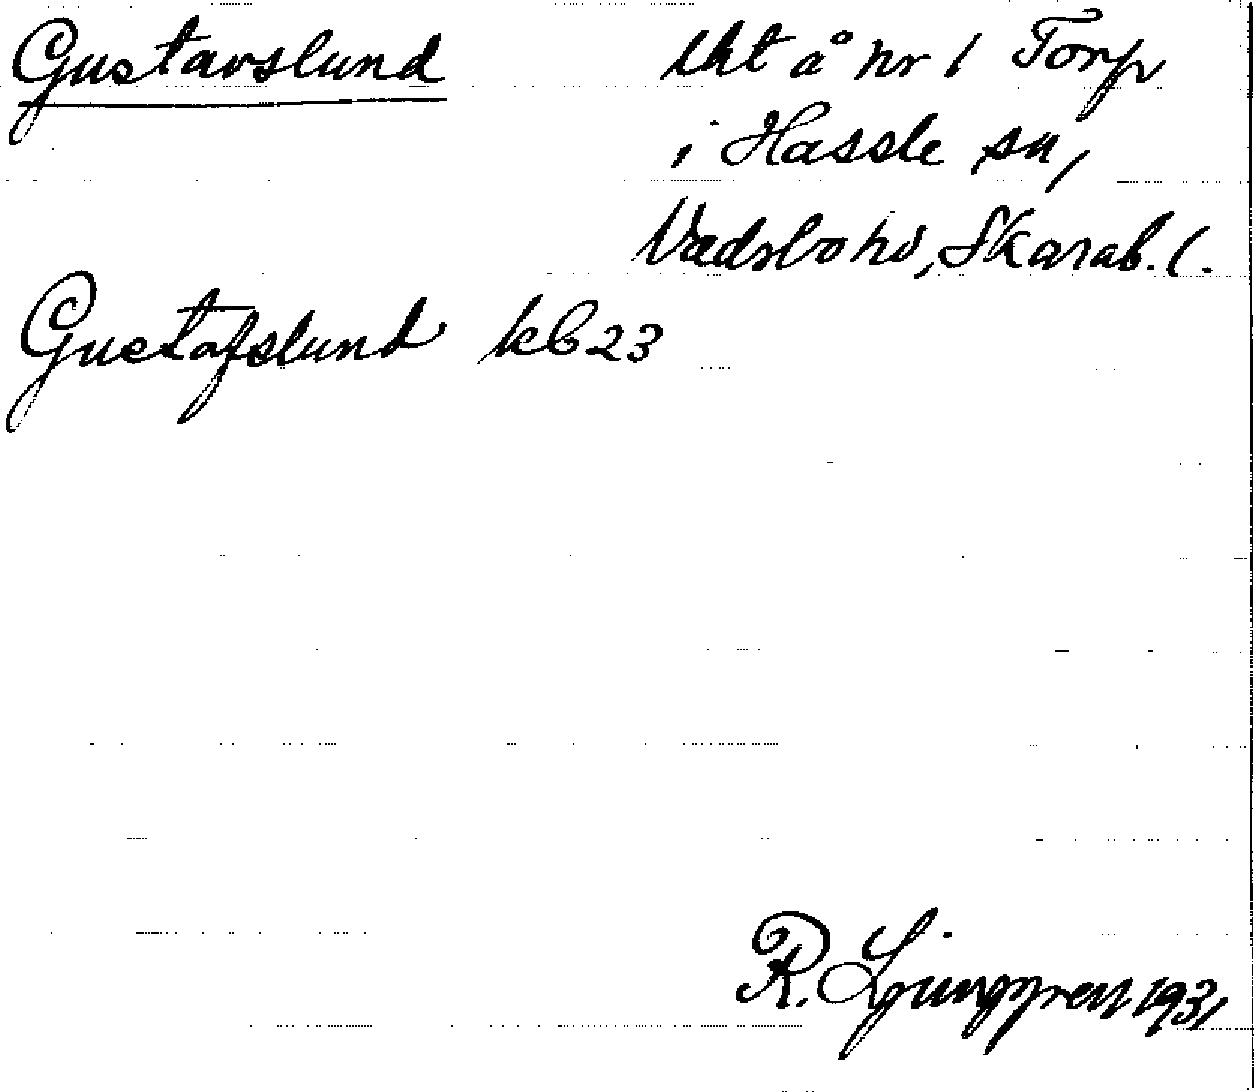 Gustavslund
lht å nr 1 Torp
i Hassle sn,
Vadsbo hd, Skarab. l.
Gustafslund kb 23
R. Ljunggren 1931